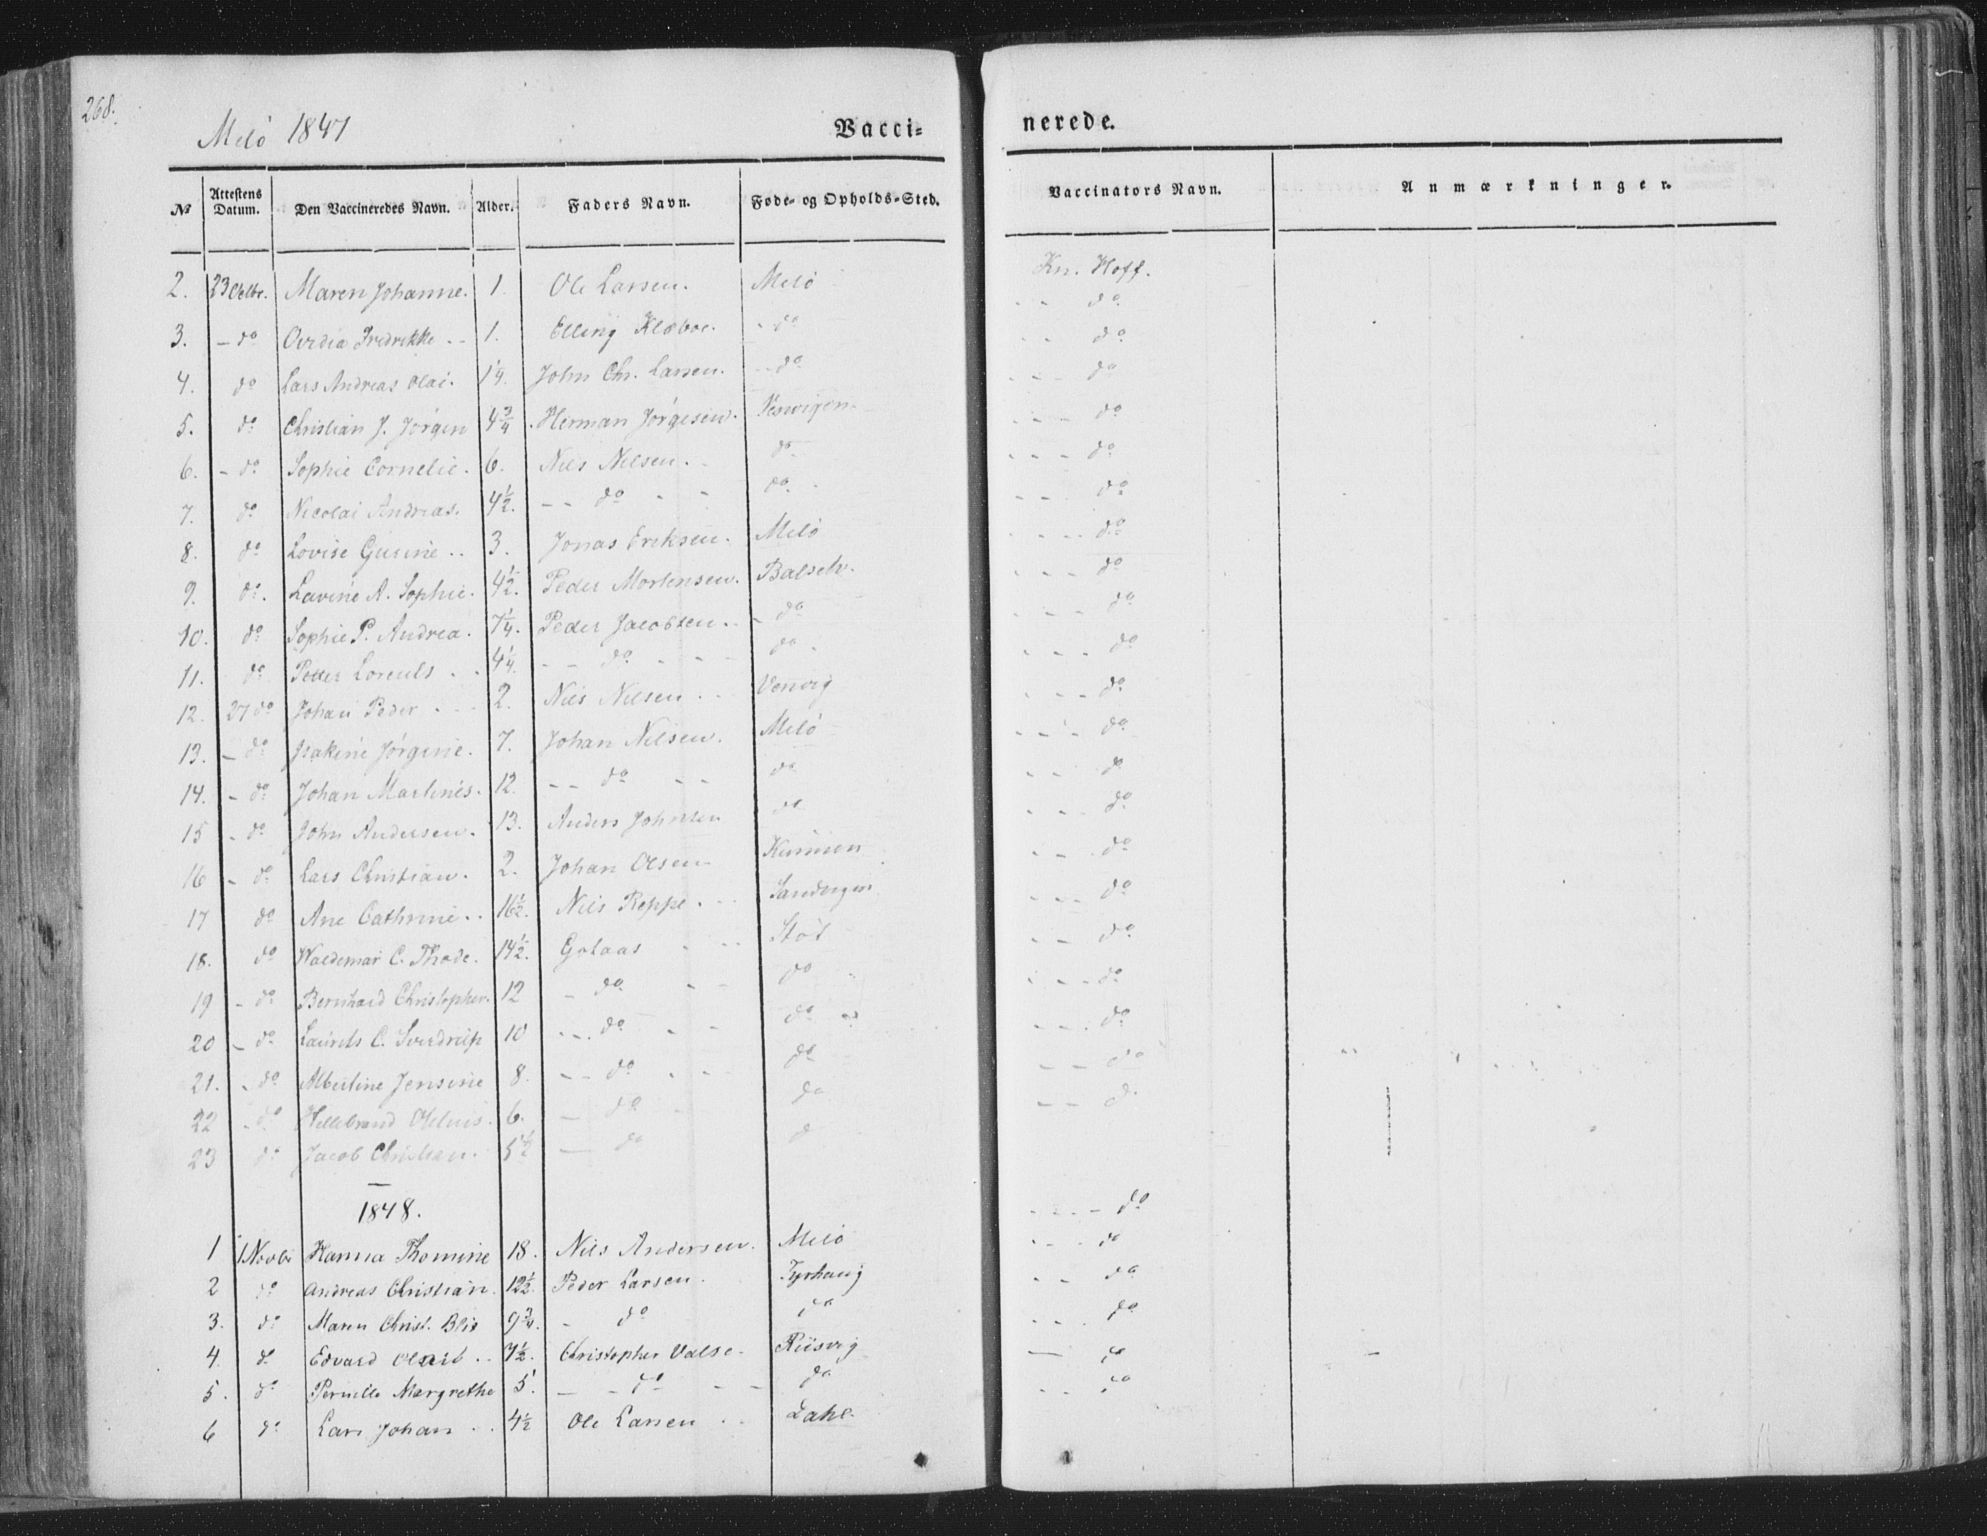 268.
Melö 1847
Vacci=
nerede.
№ Attestens Datum. Den Vaccineredes Navn. Alder. Faders Navn. Føde- og Opholds-Sted. Vaccinators Navn. Anmærkninger.
2. 23 Octbr. Maren Johanne. 1. Ole Larsen. Melö Kn. Hoff.
3. - do Ovedia Fredrikke - - 1. Elling Klæboe. - do - - do
4. do Lars Andreas Olai. 1 1/4. John Chr. Larsen. - - do - - do
5. do Christian J. Jörgen 4 3/4 Herman Jörgesen. - - - do
6. - do Sophie Cornelie. 6. Nils Nilsen. - do - - - do
7. do Nicolai Andreas. 4 1/2. - - do - - do - - - do
8. do Lovise Gurine - - 3. Jonas Eriksen. Melö - - - do
9. do. Lavine A. Sophie. 4 1/2. Peder Mortensen. - - - do
10. do Sophie P. Andrea. 7 1/4. Peder Jacobsen. - - do - - - do
11. do Peder Lorents - - 4 1/4. - - do - - - do - - - - do
12. 27 do Johan Peder - - - 2. Nils Nilsen - - Venvig - - - do
13. - do Isakine Jörgine. 7. Johan Nilsen. Melö - - - do
14. - do Johan Martines. 12. - - do - - do - - - do
15 - do John Andersen. 13. Anders Johnsen do - - - do
16 - do Lars Christian. 2. Johan Olsen - - - do
17 do Ane Cathrine - - 16 1/2. Nils Reppe - - - - - do
18. do Waldemar C. Thode. 14 1/2. Gotaas - - - Stöt - - - do
19 - do Bernhard Christopher. 12 - do - - do - - do
20 - do Laurits C. Sverdrup 10 - - do - - do - - - do
21. - do Albertine Jensine 8. - - do - - - do - - - do
22 - do Hellebrand 6. - do - do - - do
23 do Jacob Christian. 5 1/2 - do d - - d.
1848.
1 1 Novbr Hanna Thomine 18. Nils Andersen. Melö - - - do
2 do Andreas Christian. 12 1/2. Peder Larsen. - - - do
3. do Maren Christ. 9 3/4. - do do - - do
4. d. Edvard - - 7 1/2. Christopher Valse - Riisvig - - - do
5. do Pernille Margrethe 5. - - do - - do - do
6 do Lars Johan - - 4 1/2 Ole Larsen - - - - do